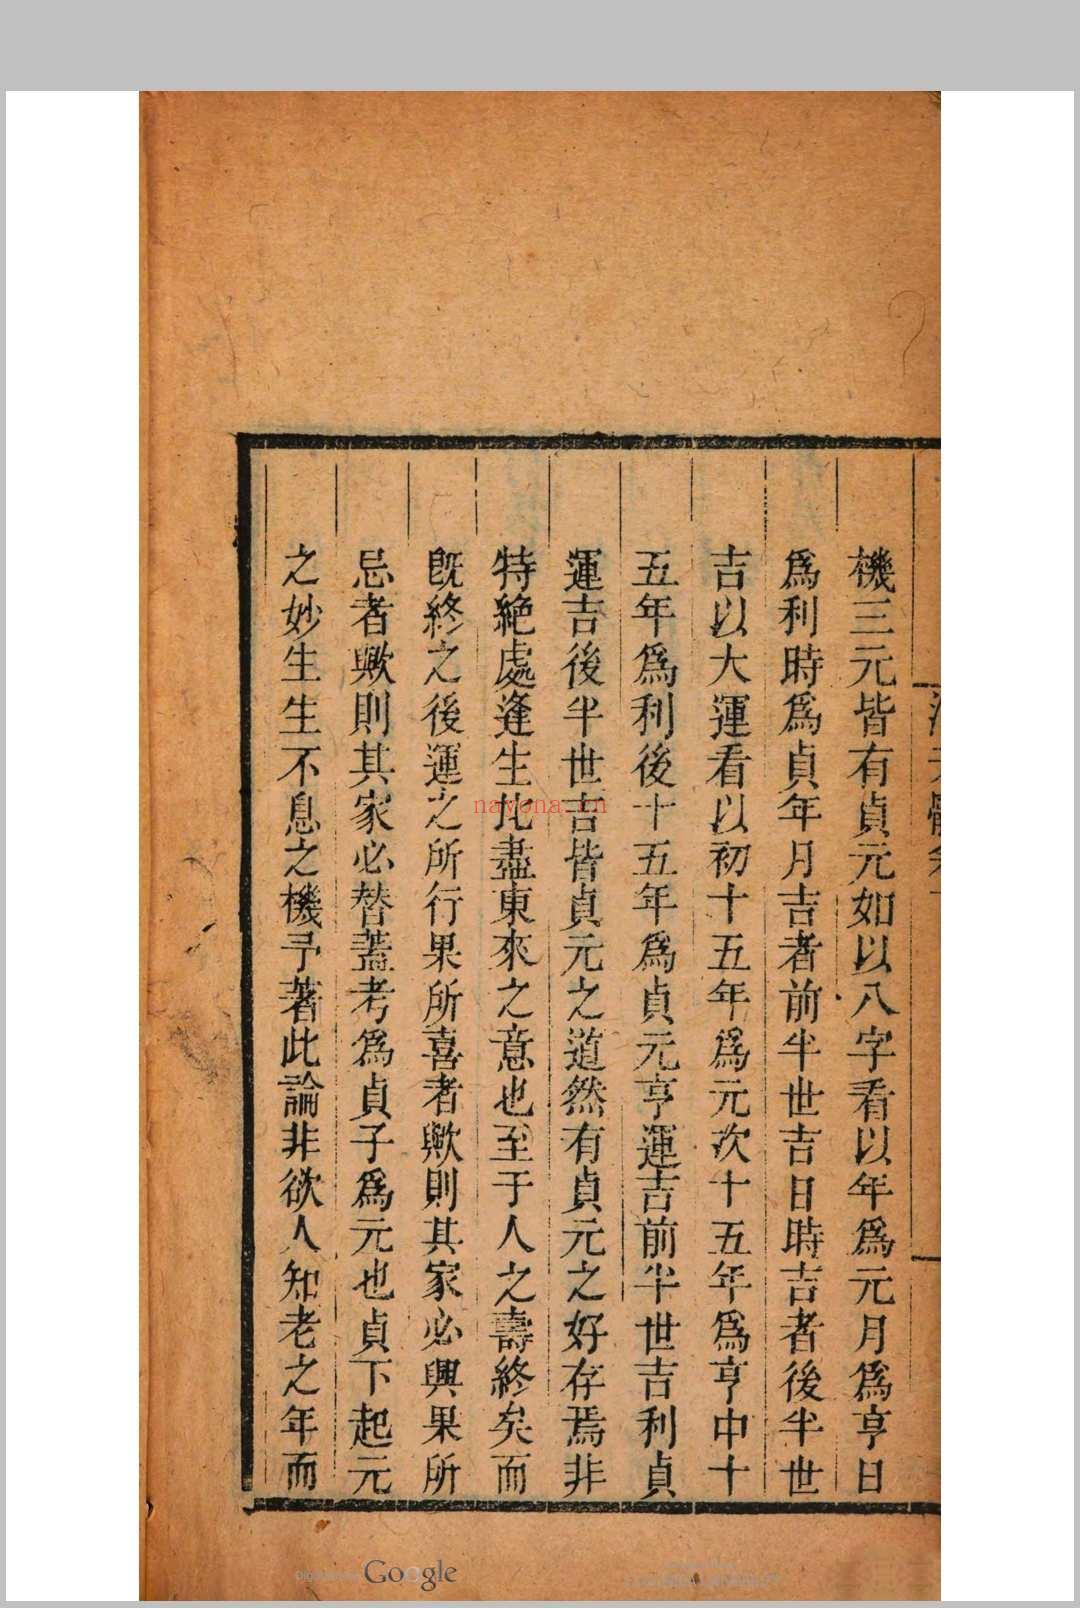 機三元皆有貞元如以八字看以年爲元月爲亨日
爲利時爲貞年月吉者前半世吉日時吉者後半世
吉以大運看以初十五年爲元次十五年爲亨中十
五年爲利後十五年爲貞元亨運吉前半世吉利貞
運吉後半世吉皆貞元之道然有貞元之妙存焉非
特絶處逢生北盡東來之意也至于人之壽終矣而
旣終之後運之所行果所喜者歟則其家必興果所
忌者歟則其家必替蓋考爲貞子爲元也貞下起元
之妙生生不息之機予著此論非欲人知老之年而
nayona.cn
Google